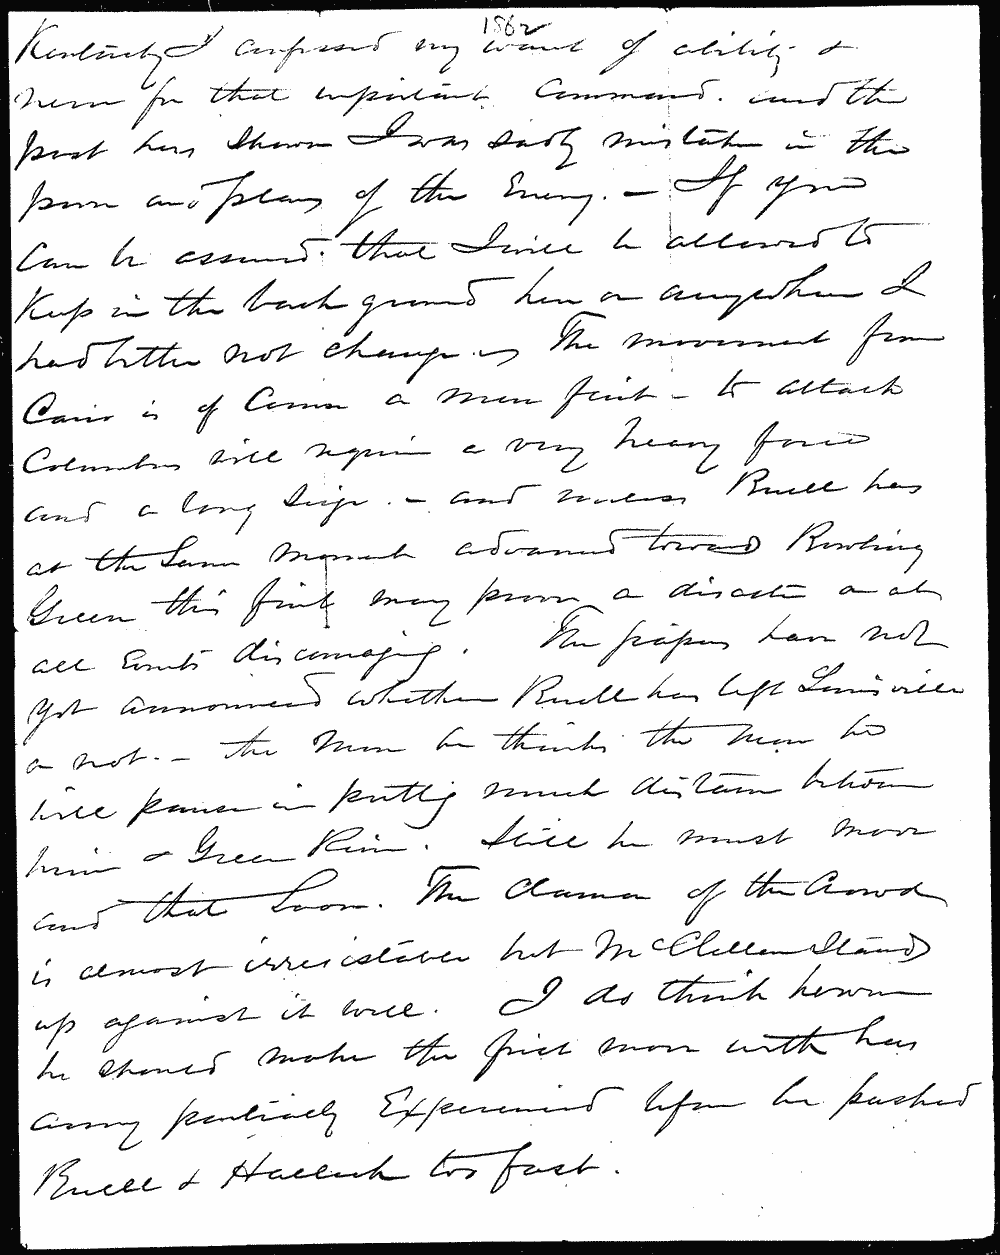 1862
Kentucky I confessed my want of ability &
nerve for that important Command. and the
past has shown I was sadly mistaken in the
power and plans of the Enemy. — If you
can be assured that I will be allowed to
Keep in the back ground here or anywhere I
had better not change. The movement from
Cairo is of Course a mere feint - to attack
Columbus will require a very heavy force
and a long siege. - and unless Buell has
at the Same moment advanced toward Bowling
Green this feint may prove a disaster or at
all Events discouraging. The papers have not
yet announced whether Buell has left Louisville
or not. - the More he thinks the more he
will pause in putting much distance between
him & Green River. Still he must move
and that Soon. The clamor of the Crowd
is almost irresistable but McClellan Stands
up against it well. I do think however
he should make the first move with his
army partially Experienced before he pushed
Buell & Halleck too fast.